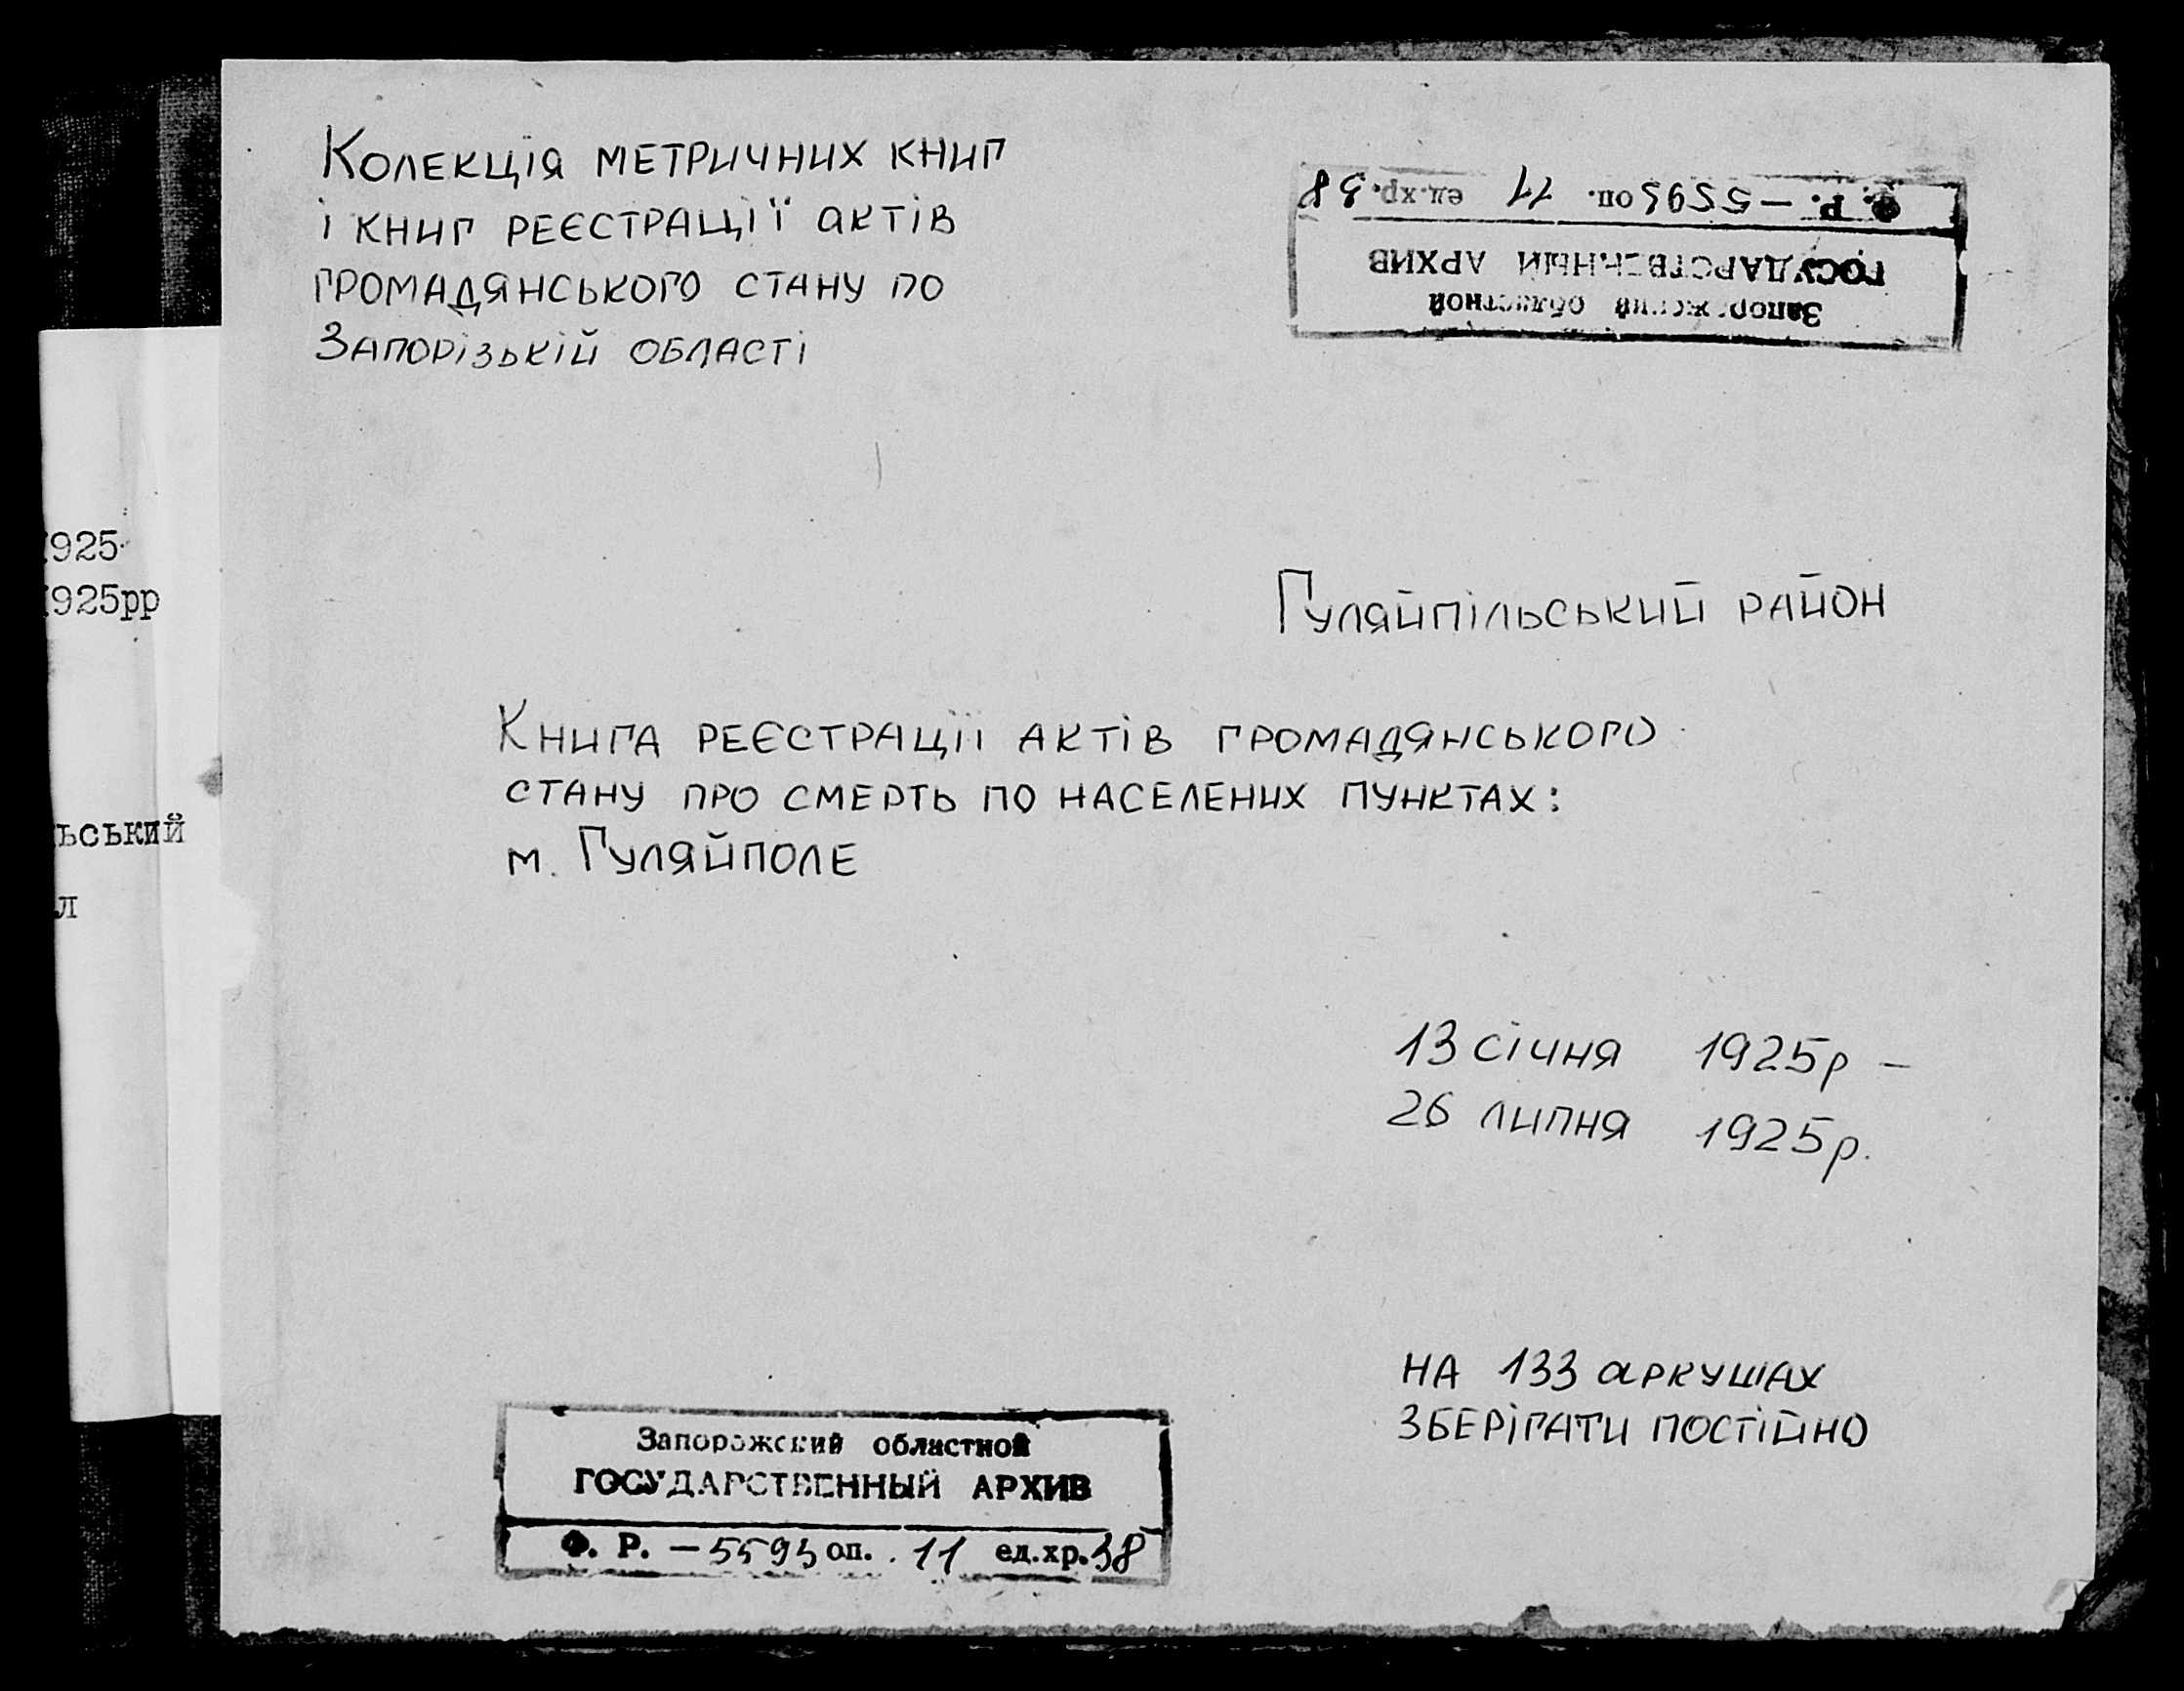 Колекція метричних книг
і книг реєстрації актів
громадянського стану по
Запорізькій області
Ф. Р. – 5593 оп. 11 ед.хр. 38
ГОСУДАРСТВЕННЫЙ АРХИВ
Запорожский областной
925
925рр
ьський
л
Гуляйпільський район
Книга реєстрації актів громадянського
стану про смерть по населених пунктах:
м. Гуляйполе
13 січня 1925р –
26 липня 1925р.
на 133 аркушах
зберігати постійно
Запорожский областной
ГОСУДАРСТВЕННЫЙ АРХИВ
Ф. Р. – 5593 оп. 11 ед.хр. 38